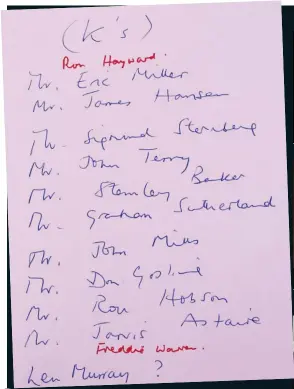 (K's)
Ron Hayward.
Mr. Eric Miller
Mr. James Hanson
Mr. Sigmund Sternberg
Mr. John Terry
Mr. Stanley Barker
Mr. Graham Sutherland
Mr. John Mills
Mr. Don Gosling
Mr. Ron Hobson
Mr. Jarvis Astaire
Freddie Warren.
Len Murray ?